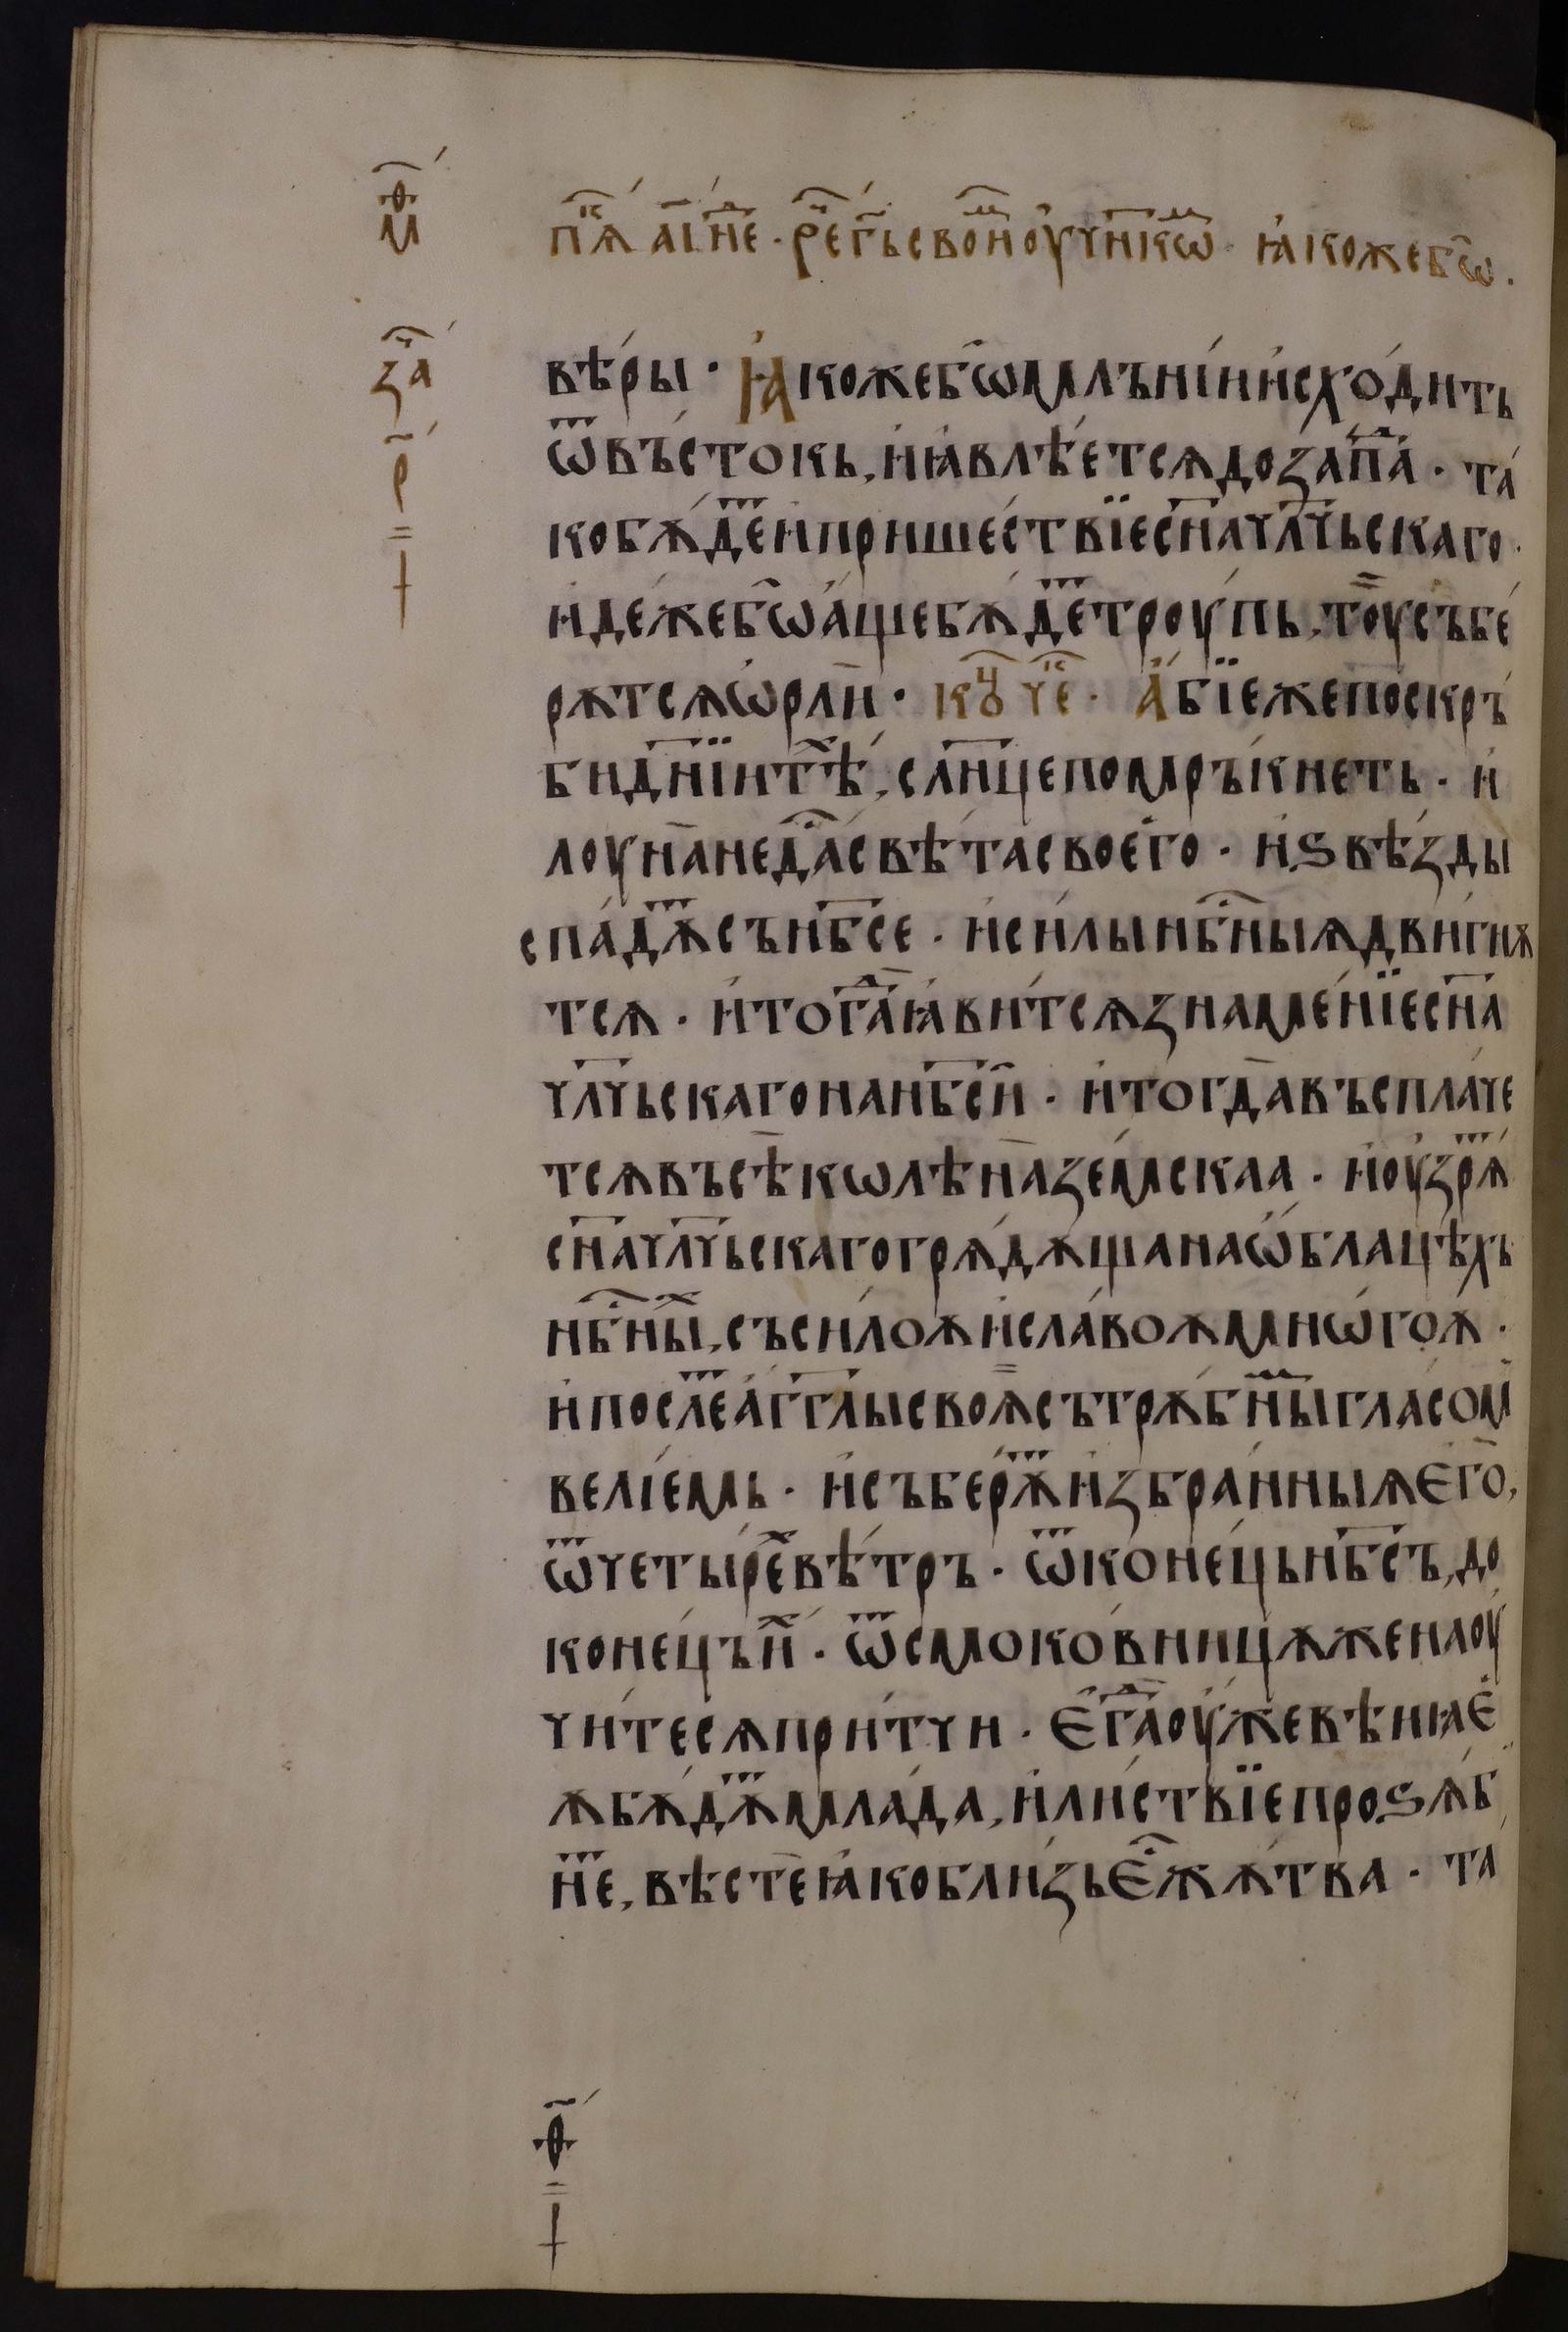 мⷴ҇
пѧⷦ҇ а҃і нⷣе · рⷱ҇е г҃ь своиⷨ оу҆чн҃кѡⷨ · ꙗ҆кожебѡ҇ .
заⷱ҇
р҃
вѣ́ры · Ꙗ҆кожебѡ҇млънїи и҆схо́дить
ѿвъсто́кь, и҆ꙗ҆влѣ́етсѧ до запⷣа · та́
ко бѫ́деⷮ и҆ пришéствїе сн҃а чл҃чьскаго ·
и҆дéже бѡ а҆́ще бѫ́деⷮ троу́пь, тоу̀ събе́
рѫтсѧ ѡ҆рлѝ · коⷰ҇н чеⷦ҇ · А҆́бїеже по скръ́
би дн҃їи тѣⷯ, сл҃нце помръ́кнеть · и҆
лоуна̀ недаⷭ҇ свѣ́та своегò · и҆ ѕвѣ́зды
спа́дѫⷮ съ нб҃се · и҆ си́лы нбⷭ҇ныѧ дви́гнѫ
тсѧ · и҆ тогⷣа ꙗ҆ви́тсѧ знамéнїе сн҃а
чл҃чьскаго на нб҃си · и҆ тогда̀ въспла́че
тсѧ въсѣ̀ кѡлѣна̀ зéмскаа · и҆ оу҆́зрѧⷮ
сн҃а чл҃чьскаго грѧ́дѫща на ѡ҆́блацѣхъ
нбⷭ҇ныⷯ, съ си́лоѫ и҆ сла́воѫ мнѡ́гоѫ ·
и҆ по́слеⷮ а҆́гг҃лы своѧ̀ съ трѫ́бныⷨ гла́сом
велїемь · и҆ съберѫ́ⷮ и҆збра́нныѧ є҆гò,
ѿ четы́реⷯ вѣ́тръ · ѿ конéць нб҃съ, до
конéць иⷯ · ѿ смоко́вницѫ же наоу
чи́тесѧ при́тчи · Є҆гⷣа оу҆́же вѣ́ниа є҆́
ѫ бѫ́дѫⷮ мла́да, и҆ ли́ствїе проѕѧ́б
неⷮ, вѣ́сте ꙗ҆́ко близь є҆ⷭ҇ жѧ́тва · та
ⷴ҇